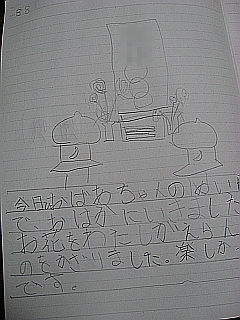 8 8
今日おばあちゃんのめいにち
で、おはかにいきました
お花をわたしがえらん
のをかざりました。楽しかっ
です。